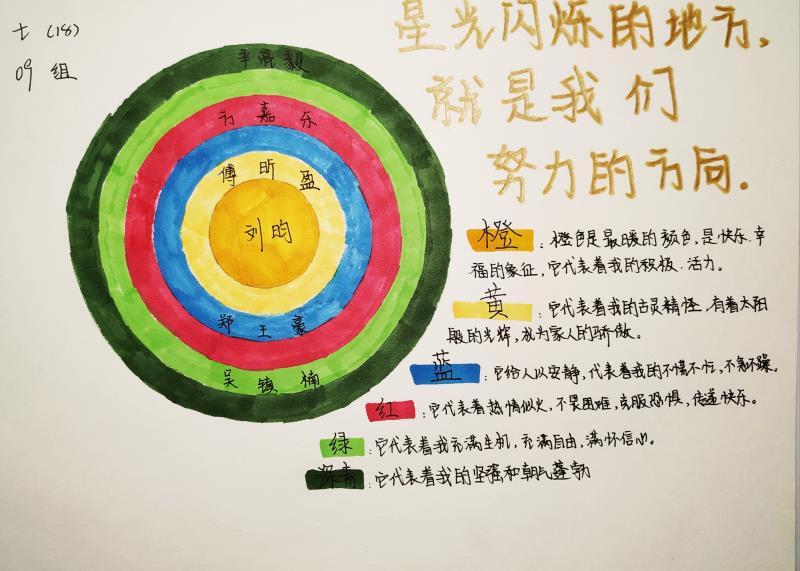 七（18）
09 组
星光闪烁的地方，
就是我们
努力的方向.
辛亮毅
方嘉乐
傅昕盈
刘昀
郑王豪
吴镇楠
橙：橙色是最暖的颜色，是快乐.幸
福的象征，它代表着我的积极.活力。
黄：它代表着我的古灵精怪，有着太阳
般的光辉，成为家人的骄傲。
蓝：它给人以安静，代表着我的不慌不忙，不急不躁。
红：它代表着热情似火，不畏困难，克服恐惧，传递快乐。
绿：它代表着我充满生机，充满自由，满怀信心。
深青：它代表着我的坚强和朝气蓬勃